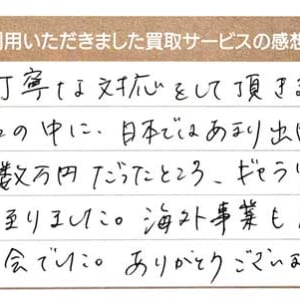 用いただきました買取サービスの感想
丁寧な対応をして頂きま
の中に、日本ではあまり出
数万円だったところ、ギャラリ
至りました。海外事業も
会でした。ありがとうございま